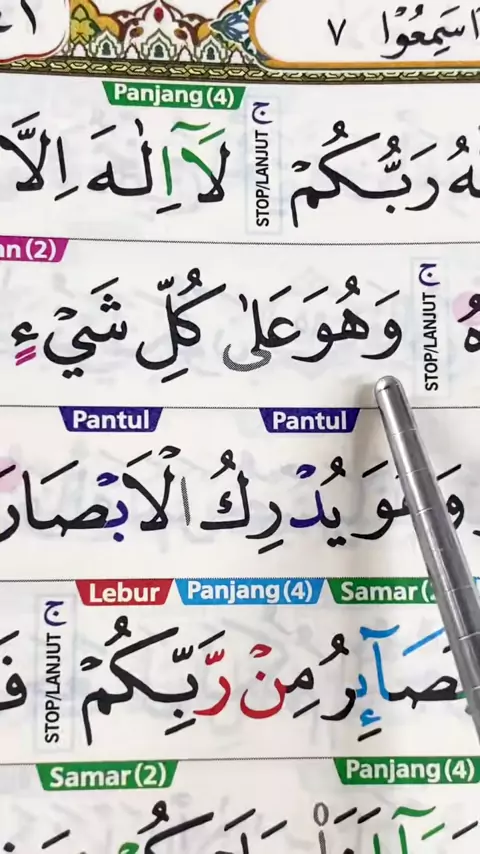 وَاِذَا سَمِعُوْا ٧
Panjang (4)
رَبُّكُمْ ۚ لَآ اِلٰهَ اِلَّا
STOP/LANJUT
(2)
ۚ وَهُوَ عَلٰى كُلِّ شَيْءٍ
STOP/LANJUT
Pantul Pantul
وَهُوَ يُدْرِكُ الْاَبْصَارَ
Samar Panjang (4) Lebur
بَصَاۤىِٕرُ مِنْ رَّبِّكُمْ ۚ
STOP/LANJUT
Panjang (4) Samar (2)